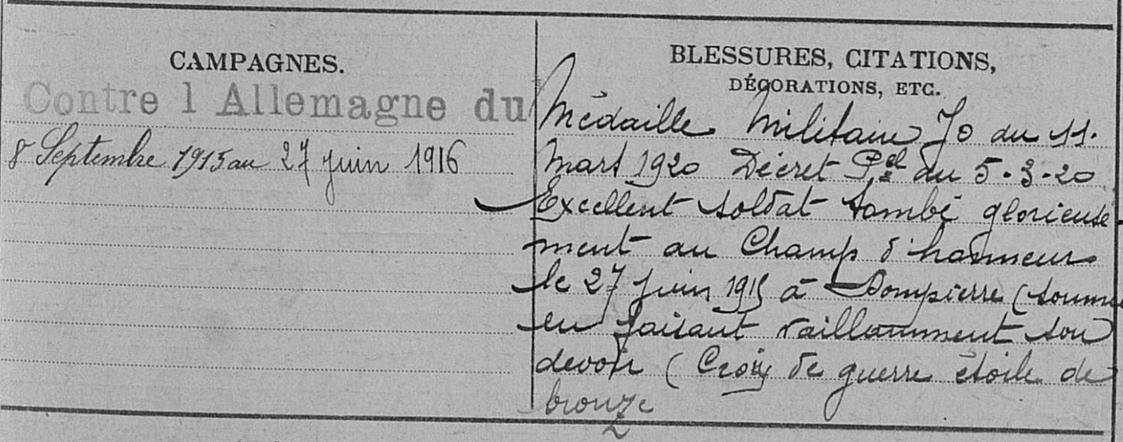 CAMPAGNES.
Contre l Allemagne du
8 Septembre 1915 au 27 juin 1916
BLESSURES, CITATIONS,
DÉCORATIONS, ETC.
Médaille Militaire JO du 11.
Mars 1920 Décret Pel du 5-3-20
Excellent soldat tombé glorieuse
ment au Champ d'honneur
le 27 juin 1915 à Dompierre (Somme
en faisant vaillamment son
devoir (Croix de guerre étoile de
bronze